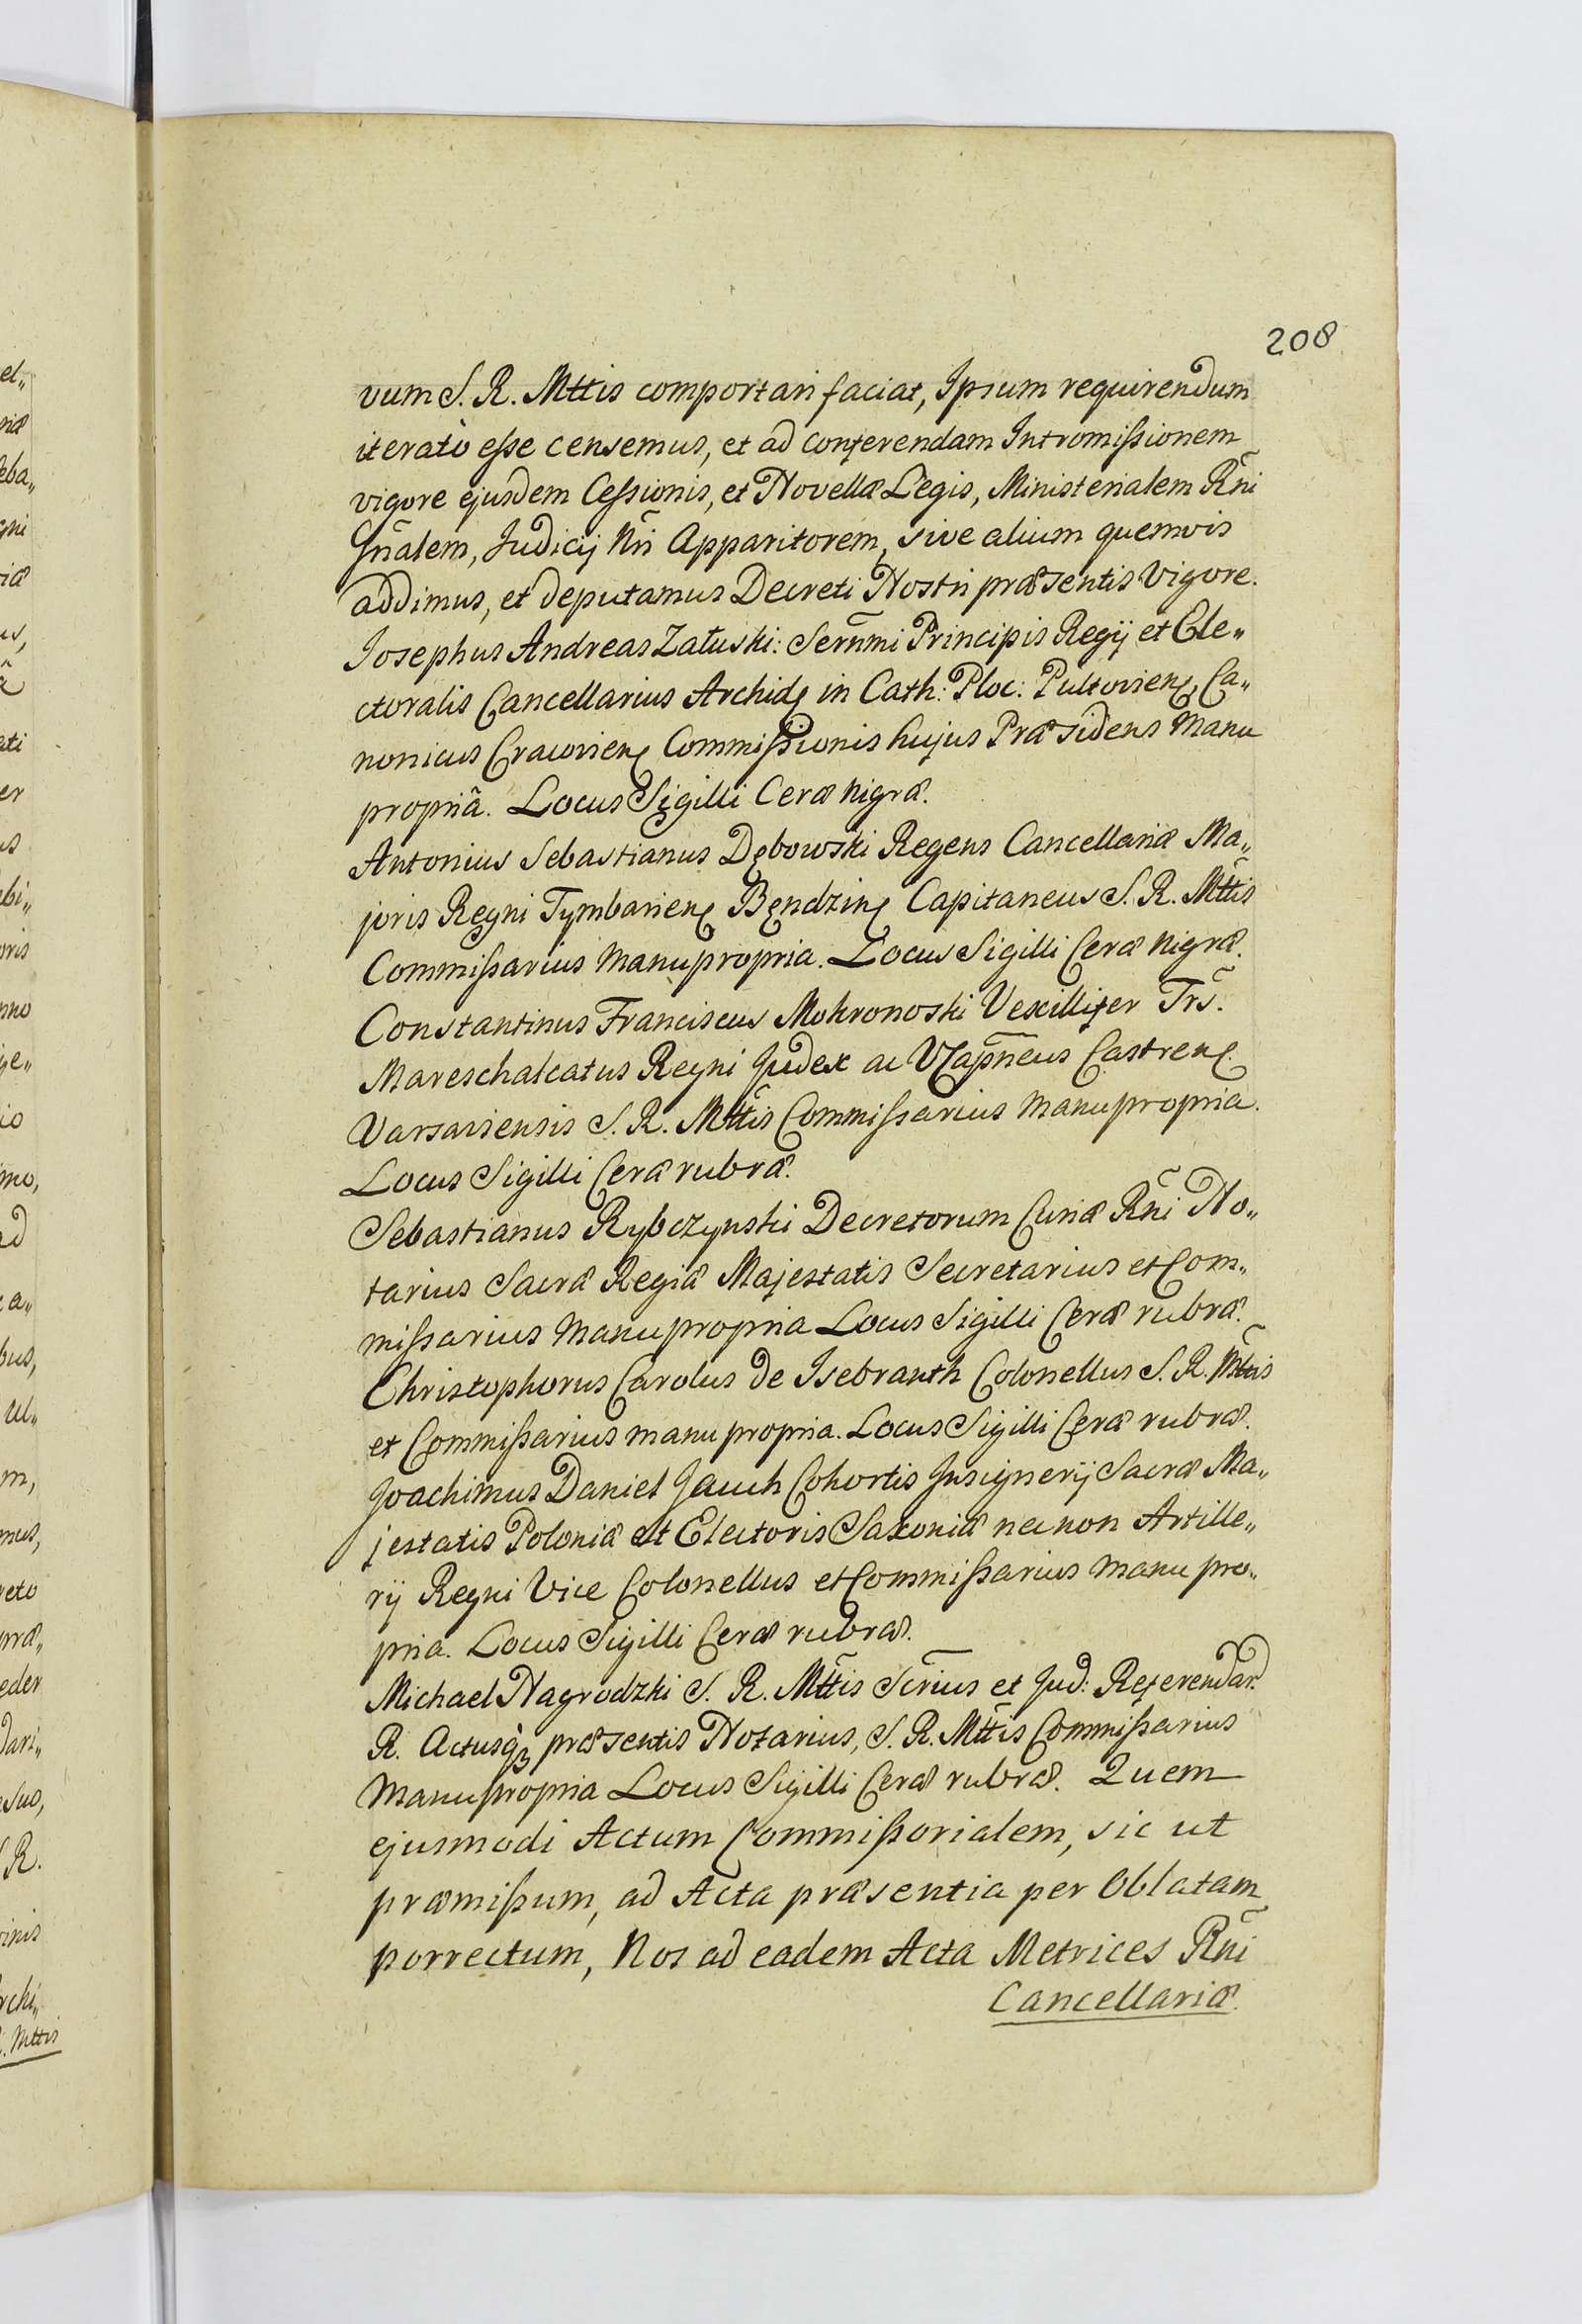 208
vum S. R. Mttis comportari faciat, Ipsum requirendum
iteratò eſse censemus, et ad conferendam Intromiſsionem
vigore ejusdem Ceſsionis, et Novellæ Legis, Ministerialem Rñi
Gñalem, Judicij Nri Apparitorem, sive alium quemvis
addimus, et deputamus Decreti Nostri præsentis Vigore.
Josephus Andreas Załuski: Serñmi Principis Regij et Ele„
ctoralis Cancellarius Archid in Cath: Ploc: Pultovien, Ca„
nonicus Cracovien Commiſsionis hujus Præsidens Manu
propriâ. Locus Sigilli Ceræ Nigræ.
Antonius Sebastianus Dębowski Regens Cancellariæ Ma„
joris Regni Tymbarien Bęndzin Capitaneus S. R. Mttis
Commiſsarius Manu propria. Locus Sigilli Ceræ Nigræ.
Constantinus Franciscus Mokronoski Vexillifer Trs.
Mareschalcatus Regni Judex ac VCapneus Castren
Varsaviensis S. R. Mttis Commiſsarius Manu propria.
Locus Sigilli Ceræ rubræ.
Sebastianus Rybczynski Decretorum Curiæ Rñi No„
tarius Sacræ Regiæ Majestatis Secretarius et Com„
miſsarius Manu propria Locus Sigilli Ceræ rubræ.
Christophorus Carolus de Isebranth Colonellus S. R. Mttis
et Commiſsarius manu propria. Locus Sigilli Ceræ rubræ.
Joachimus Daniel Jauch Cohortis Insignerij Sacræ Ma„
jestatis Poloniæ et Electoris Saxoniæ necnon Artille„
rij Regni Vice Colonellus et Commiſsarius Manu pro„
pria. Locus Sigilli Ceræ rubræ.
Michael Nagrodzki S. R. Mttis Scrius et Jud: Referendar.
R. Actusq3 præsentis Notarius, S. R. Mttis Commiſsarius
Manu propria Locus Sigilli Ceræ rubræ. Quem
ejusmodi Actum Commiſsorialem, sic ut
præmiſsum, ad Acta præsentia per Oblatam
porrectum, Nos ad eadem Acta Metrices Rñi
Cancellariæ